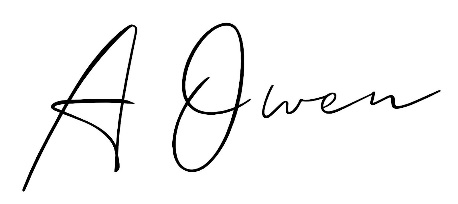 A Owen